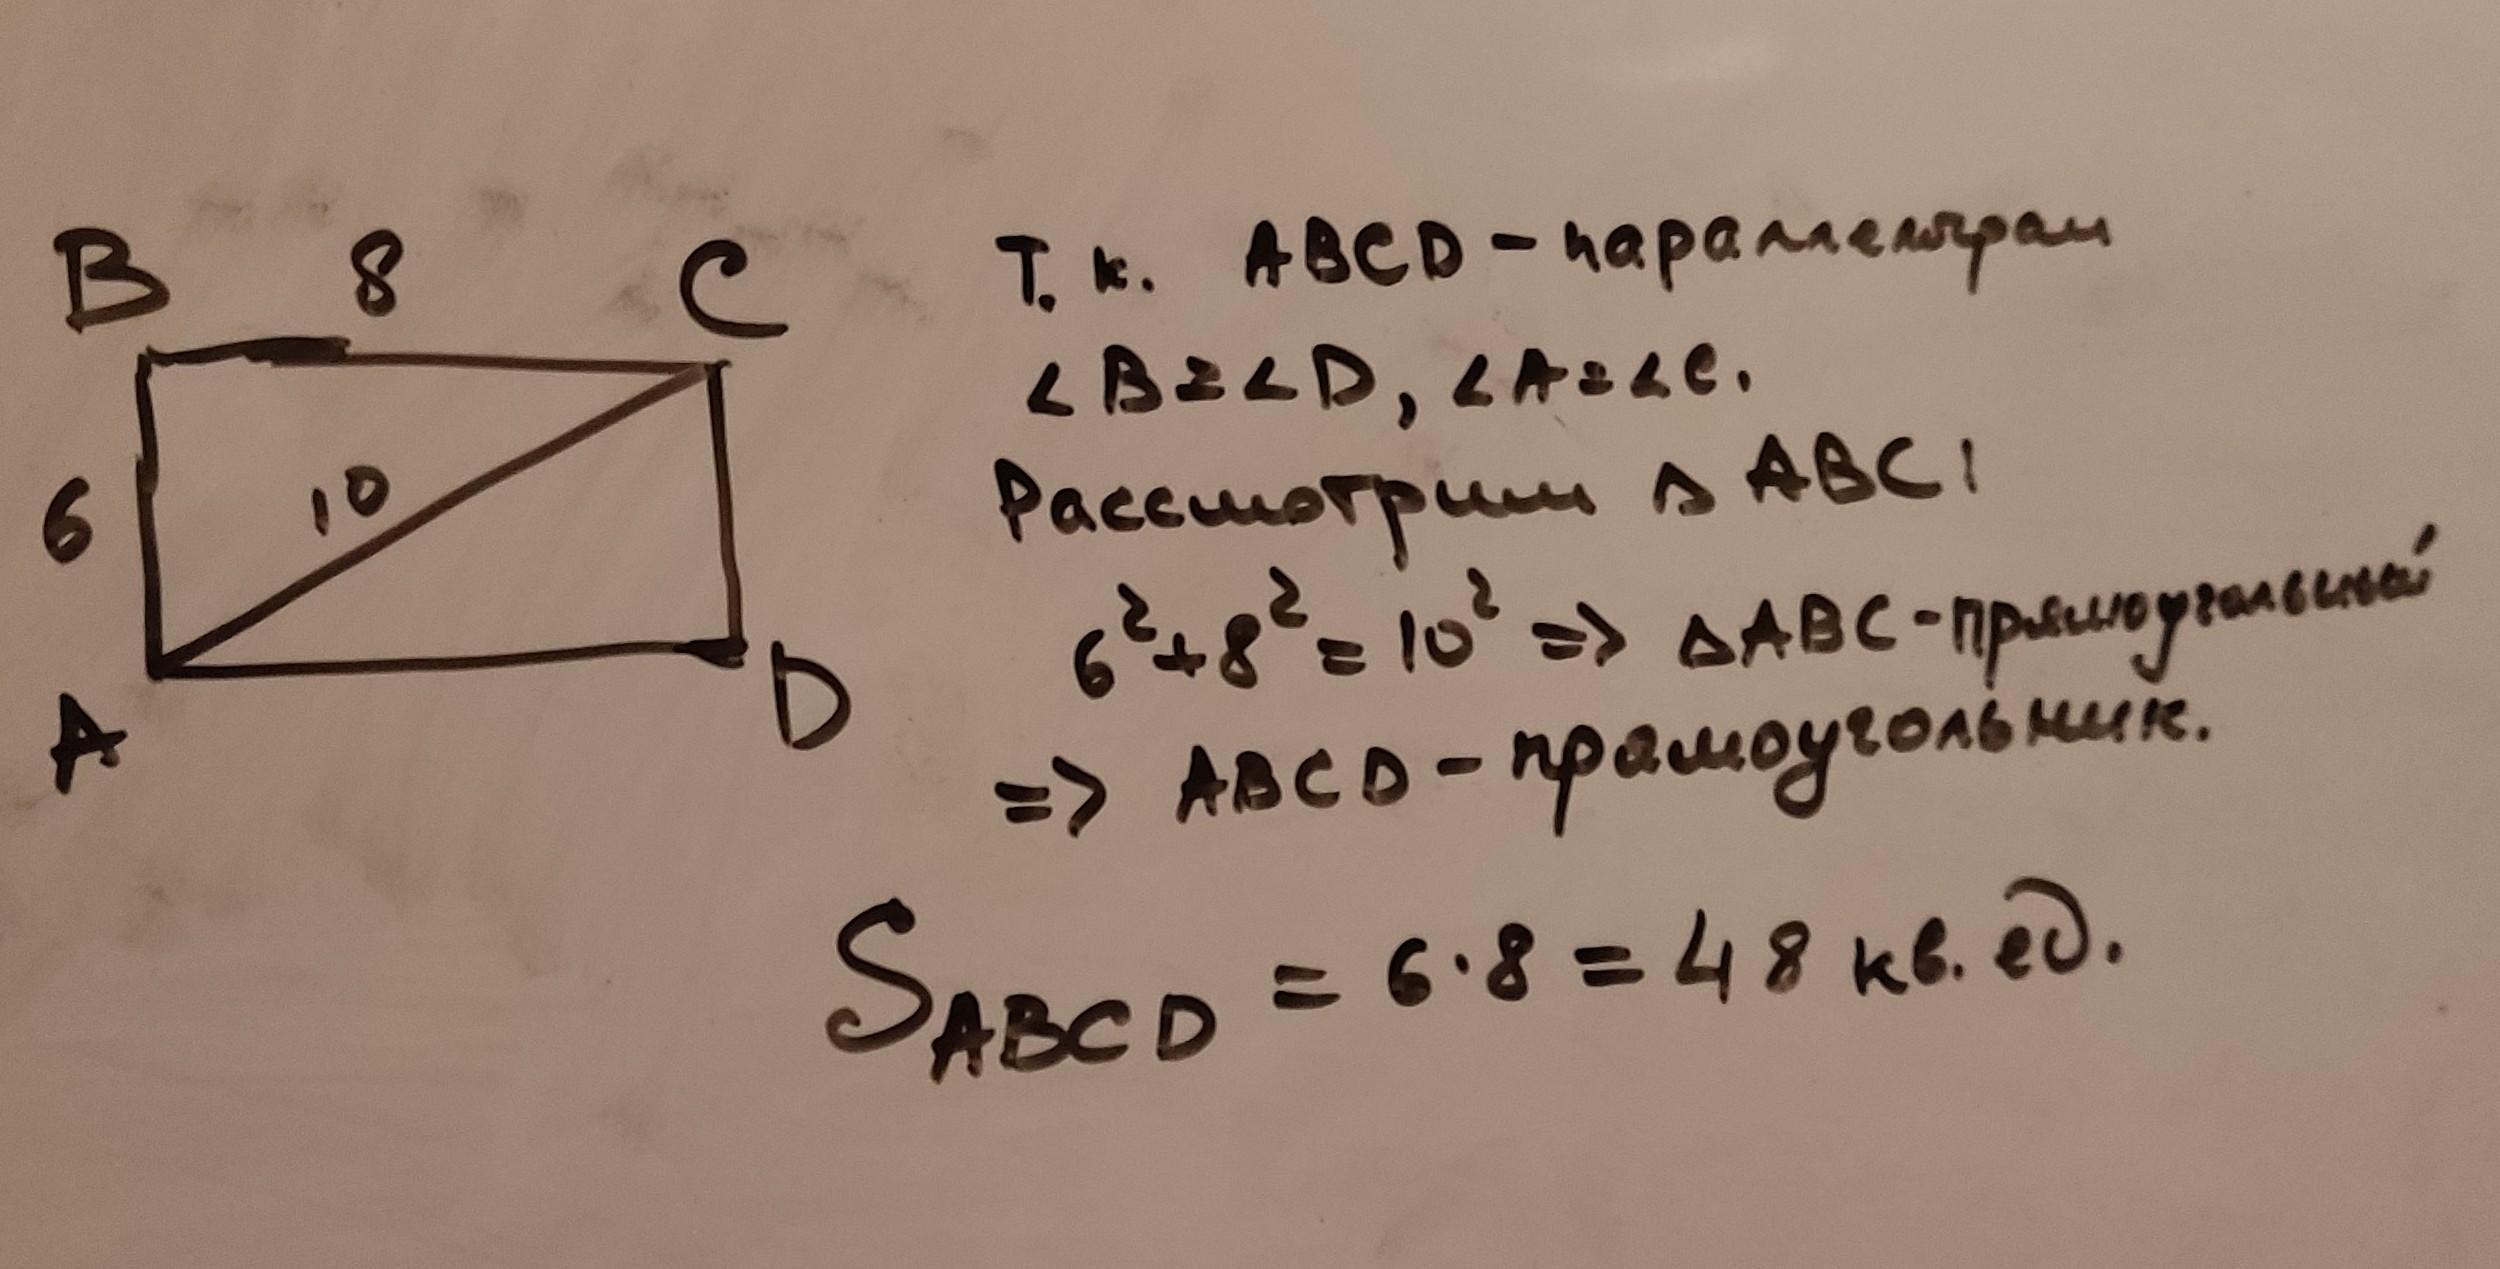 B 8 C
6
10
A
D
Т. к. ABCD - параллелограм
∠B=∠D, ∠A=∠C.
Рассмотрим △ABC:
6²+8²=10² => △ABC - прямоугольный
=> ABCD - прямоугольник.
S_ABCD = 6·8 = 48 кв. ед.